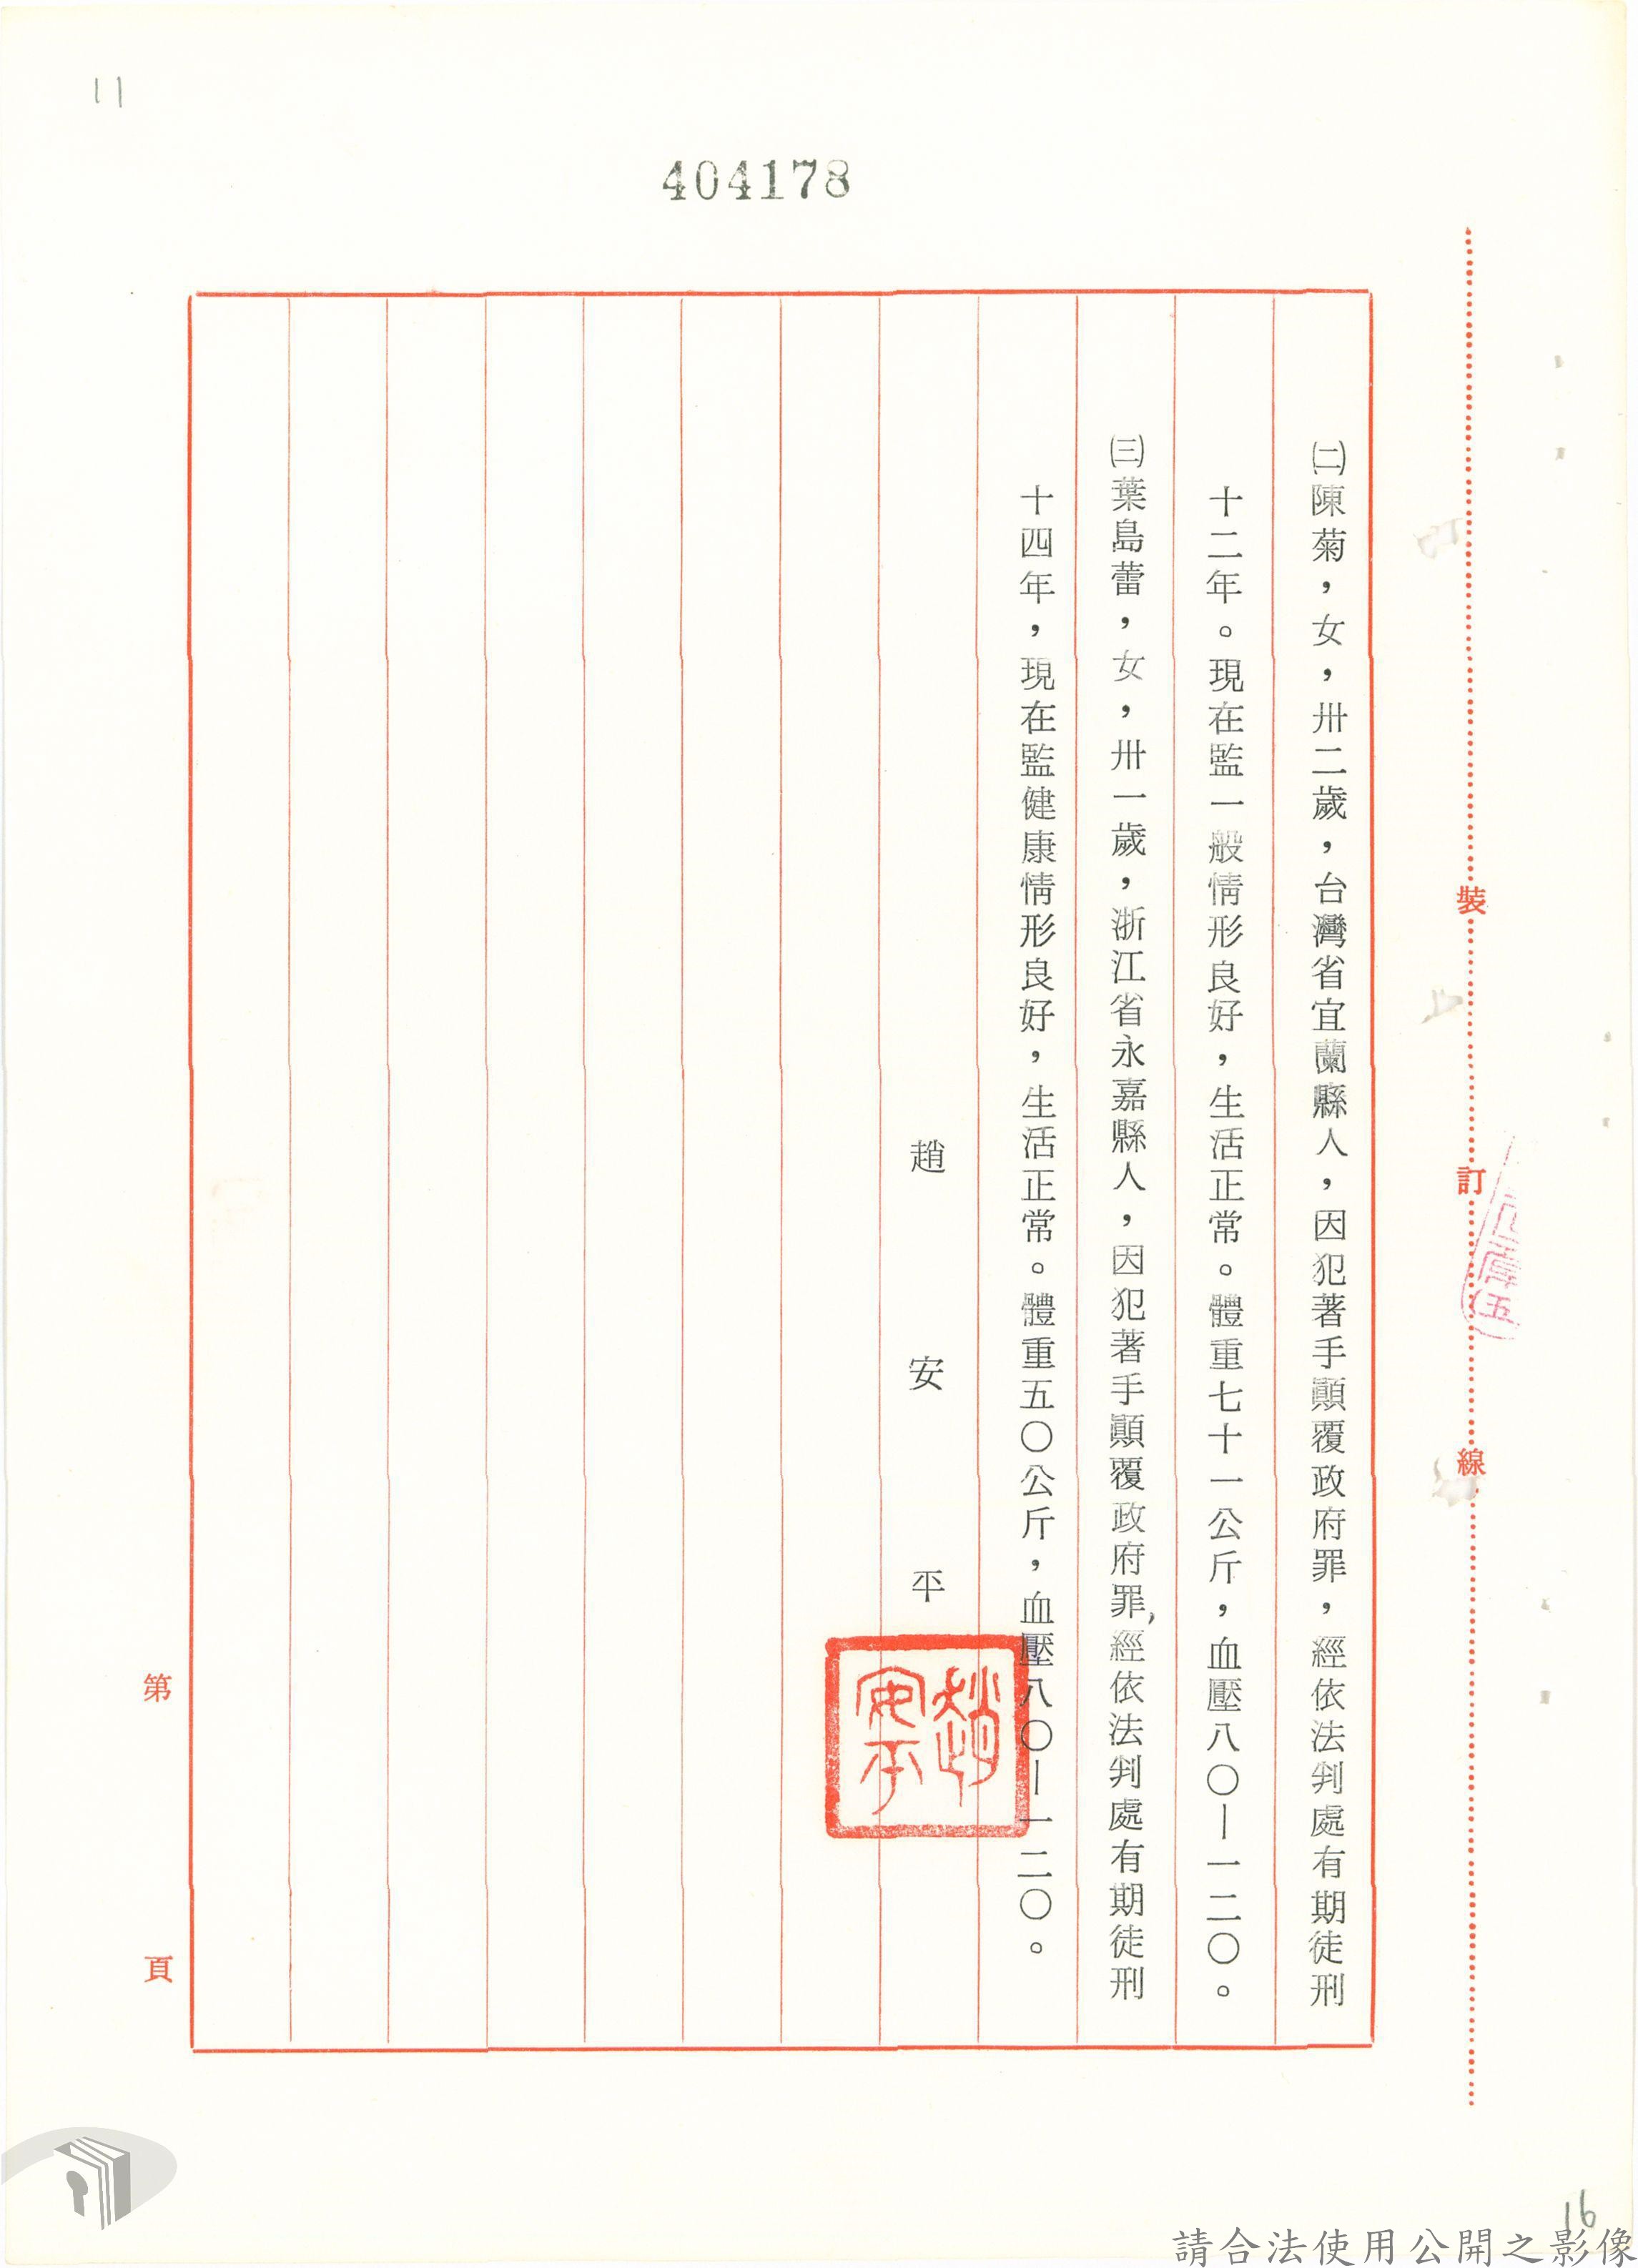 11
404178
㈡陳菊，女，卅二歲，台灣省宜蘭縣人，因犯著手顚覆政府罪，經依法判處有期徒刑
十二年。現在監一般情形良好，生活正常。體重七十一公斤，血壓八〇—一二〇。
㈢葉島蕾，女，卅一歲，浙江省永嘉縣人，因犯著手顚覆政府罪，經依法判處有期徒刑
十四年，現在監健康情形良好，生活正常。體重五〇公斤，血壓八〇—一二〇。
趙安平
趙安平
裝訂線
第頁
16
請合法使用公開之影像